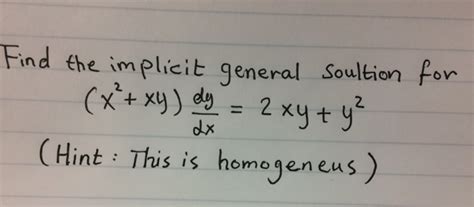 Find the implicit general soultion for
(x² + xy) dy/dx = 2xy + y²
(Hint : This is homogeneus)